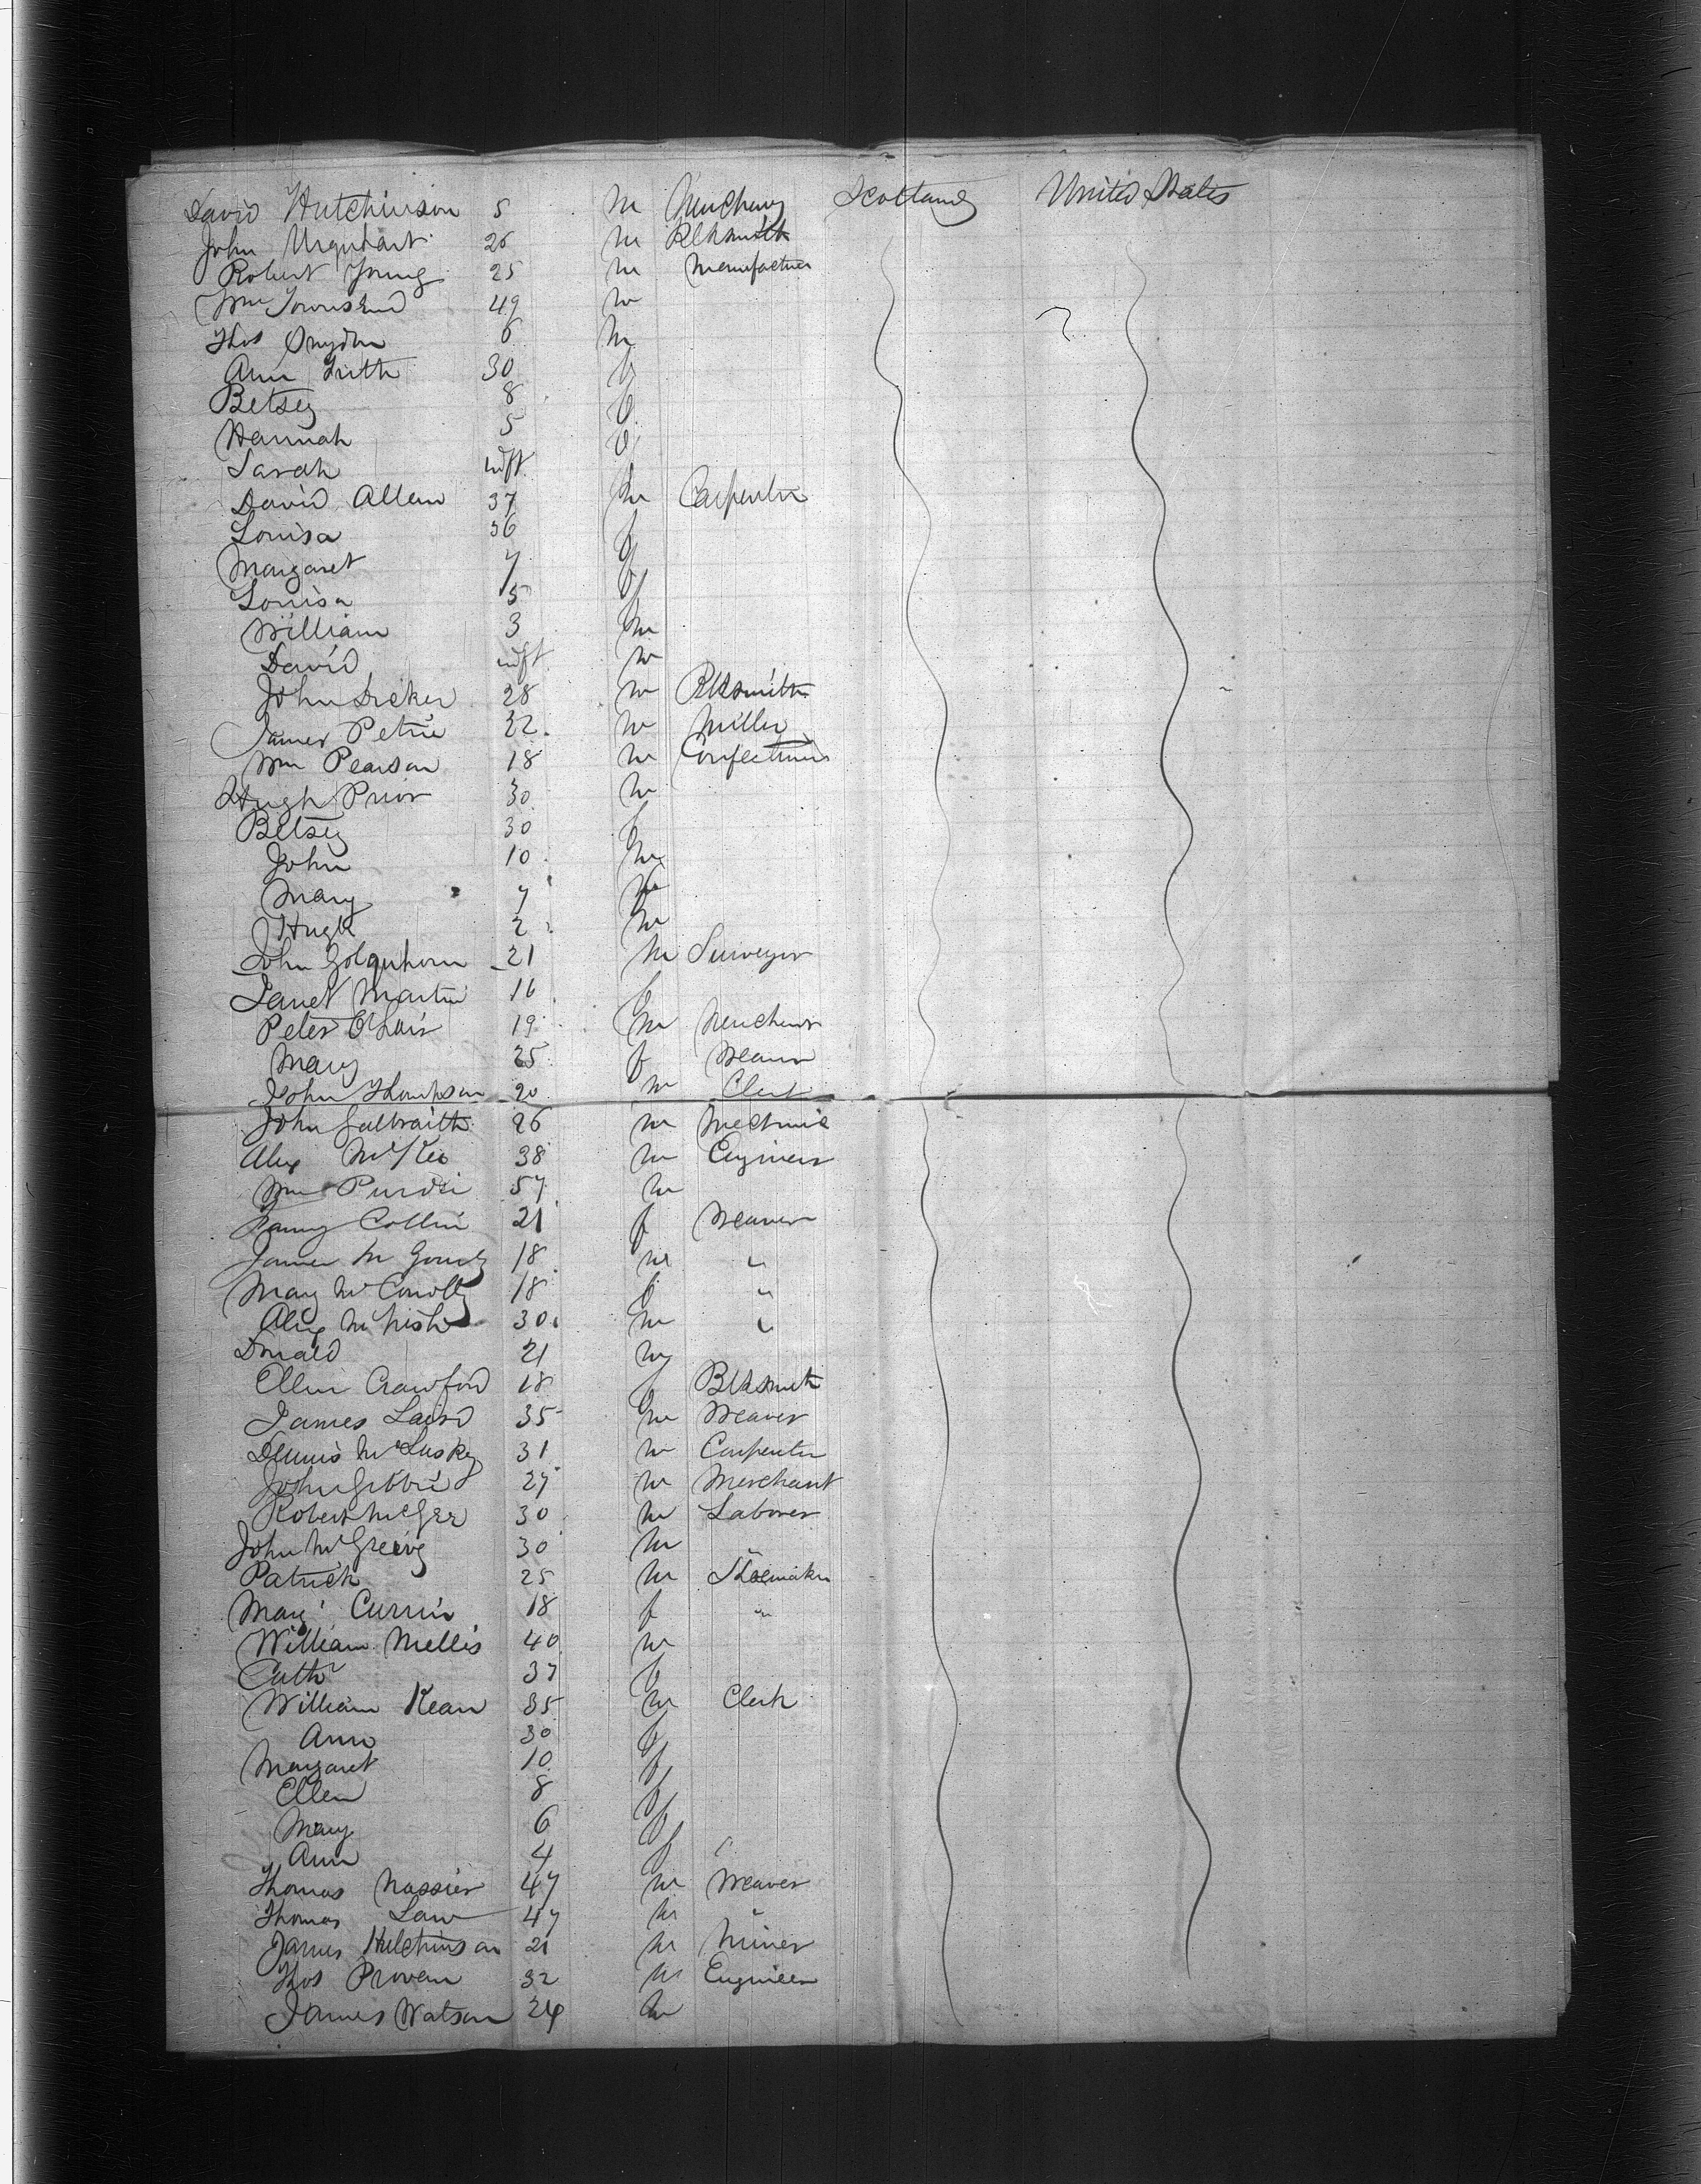 David Hutchinson 5 m Merchant Scotland United States
John Urquhart 26 m Blksmith
Robert Young 25 m Manufactur
Wm Townsend 49 m
Thos 6 m
Ann Frith 30 f
Betsey 8 f
Hannah 5 f
Sarah inft
David Allen 37 m Carpenter
Louisa 36 f
Margaret 7 f
Louisa 5 f
William 3 m
David inft m
John 28 m Blksmith
James Petrie 32 m Miller
Wm Pearson 18 m Confectioner
Hugh Prior 30 m
Betsey 30 f
John 10 m
Mary 7
Hugh 2 m
John Colquhoun 21 m Surveyor
Janet Martin 16 f
Peter 19 m Merchant
Mary 25 f Weaver
John Thompson 20 m Clerk
John Galbraith 26 m Mechanic
Alex McKee 38 m Engineer
Wm Purdie 57 m
Fanny Collin 21 f Weaver
James 18 m "
Mary McConolly 18 f "
Alex McNish 30 m "
Donald 21 m
Ellen Crawford 18 f Blksmith
James Laird 35 m Weaver
Dennis McLuskey 31 m Carpenter
John Gibbie 27 m Merchant
Robert McGee 30 m Laborer
John McGreevy 30 m "
Patrick 25 m Shoemaker
Mary Currin 18 f "
William Mellis 40 m
Cath 37 f
William Kean 35 m Clerk
Ann 30 f
Margaret 10 f
Ellen 8 f
Mary 6 f
Ann 4 f
Thomas 47 m Weaver
Thomas Law 47 m "
James Hutchinson 21 m Miner
Thos Provan 32 m Engineer
James Watson 24 m